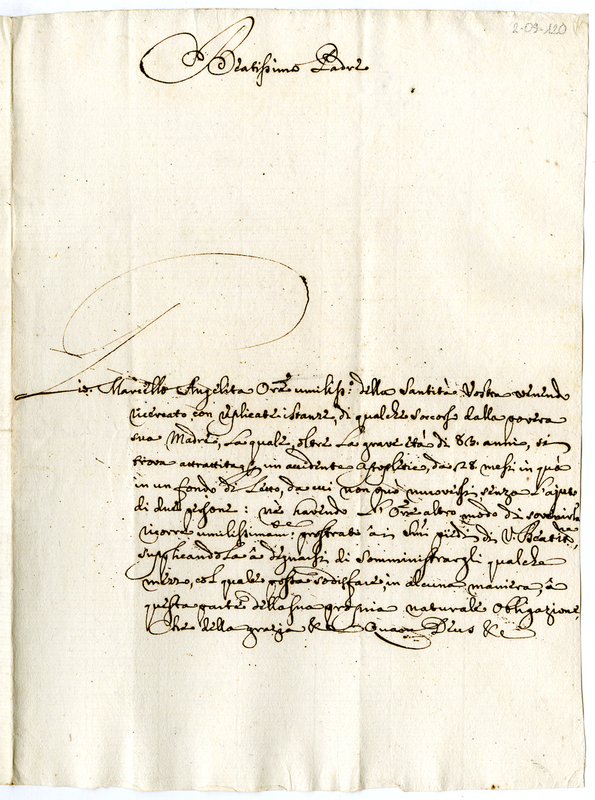 2-09-120
Beatissimo Padre
Pio Marcello Angelita Ore umiliss.o della Santità Vostra venendo
ricercato con replicate istanze, di qualche soccorso dalla povera
sua Madre, la quale, oltre la grave età di 83 anni, si
trova attrattita p un accidente Apopletico, da 28 mesi in quà
in un fondo di Letto, da cui non può muoversi senza l'ajuto
di due persone: né havendo l'Ore altro modo di sovvenirla
ricorre umilissimam.e prostrato à i Suoi piedi di V. Beatit.ne
supplicandola à degnarsi di somministrargli qualche
mezzo, col quale possa sodisfare, in alcuna maniera, à
questa parte della sua propria naturale Obbligazione,
Che della grazia &c Quam Deus &c